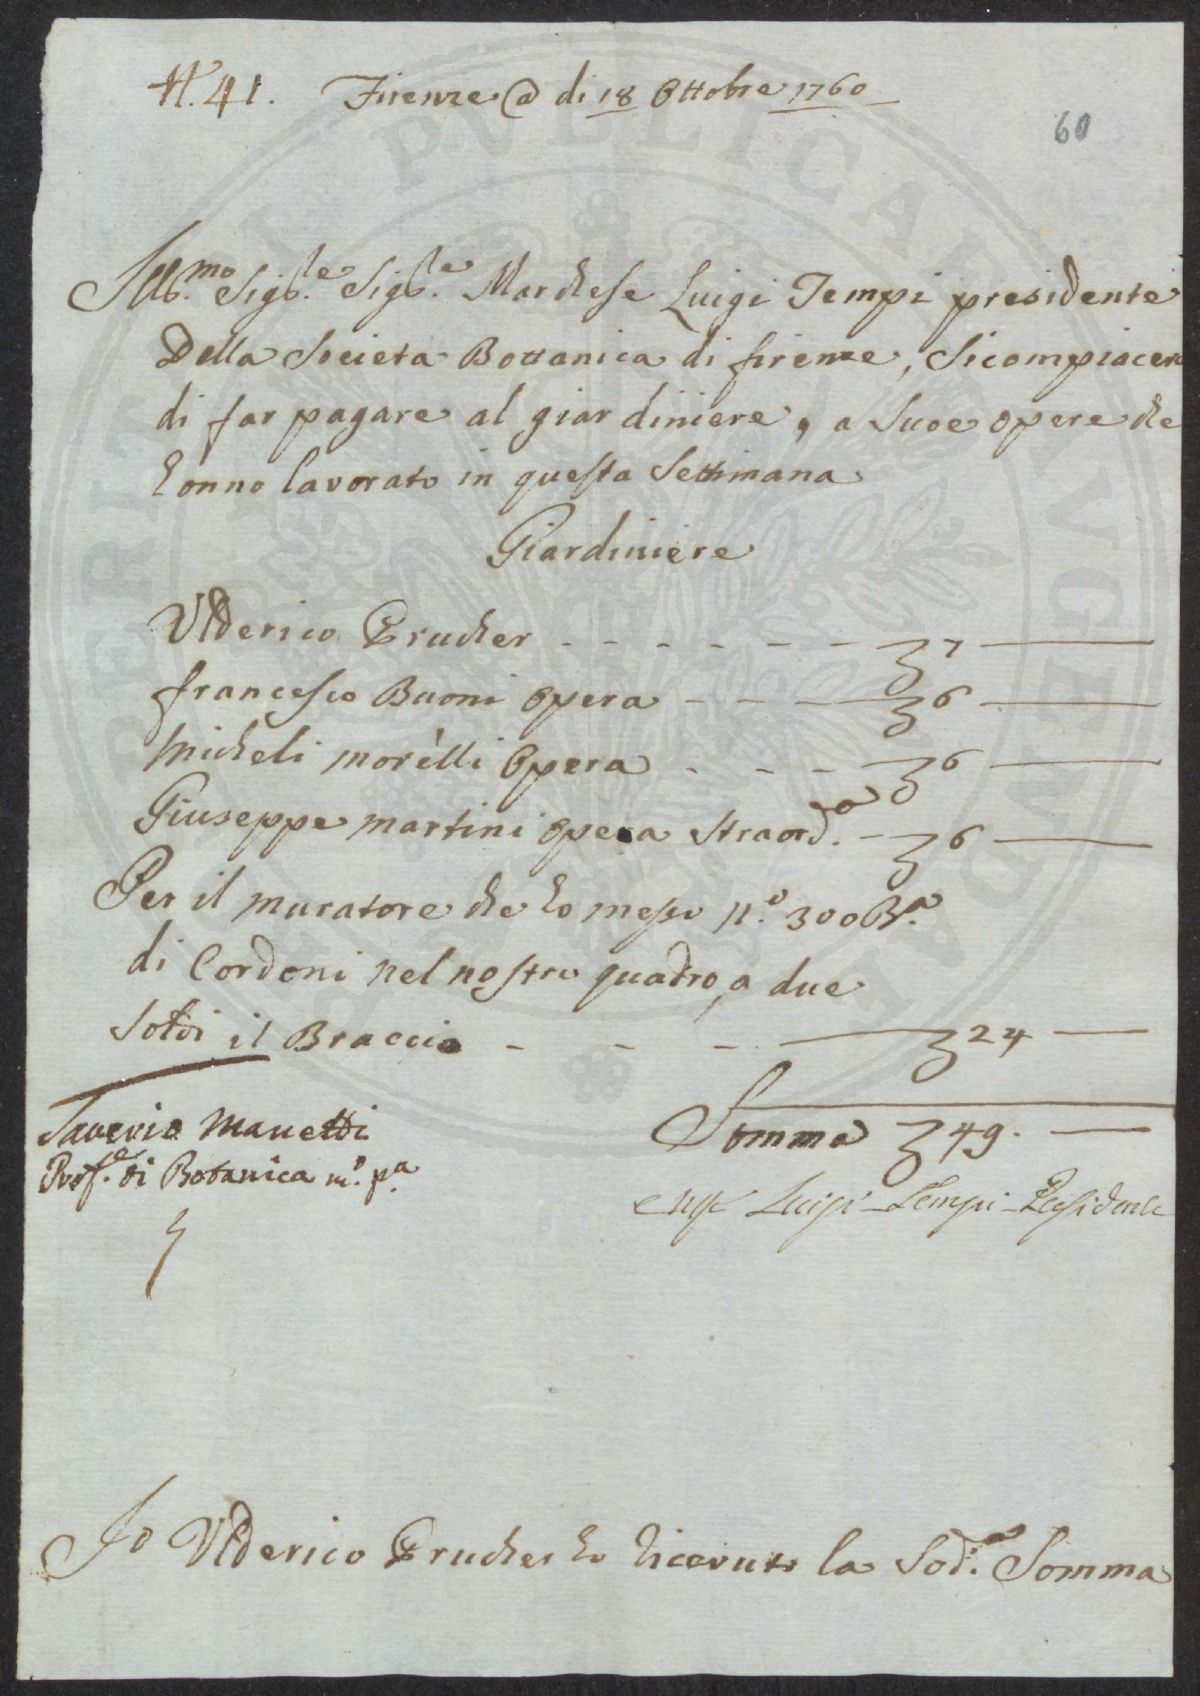 N. 41. Firenze @ di 18 Ottobre 1760
60
Ill.mo Sigr.e Sigr.e Marchese Luigi Tempi presidente
Della Societa Bottanica di firenze, Si compiacerà
di far pagare al giardiniere, a Suoe opere che
hanno lavorato in questa Settimana
Giardiniere
Ulderico Prucher - - - - - - ʒ 7 —
francesco Buoni opera - - - ʒ 6 —
Micheli morèlli opera - - - ʒ 6 —
Giuseppe martini opera Straord.a - ʒ 6 —
Per il muratore che ho messo n.o 300 B.a
di Cordoni nel nostro quadro, a due
Soldi il Braccio - - - — ʒ 24 —
Somma ʒ 49. —
Saverio Manetti
Prof.e di Botanica m.o p.a
Luigi Tempi Presidente
Io Ulderico Prucher ho ricevuto la Sod.a Somma